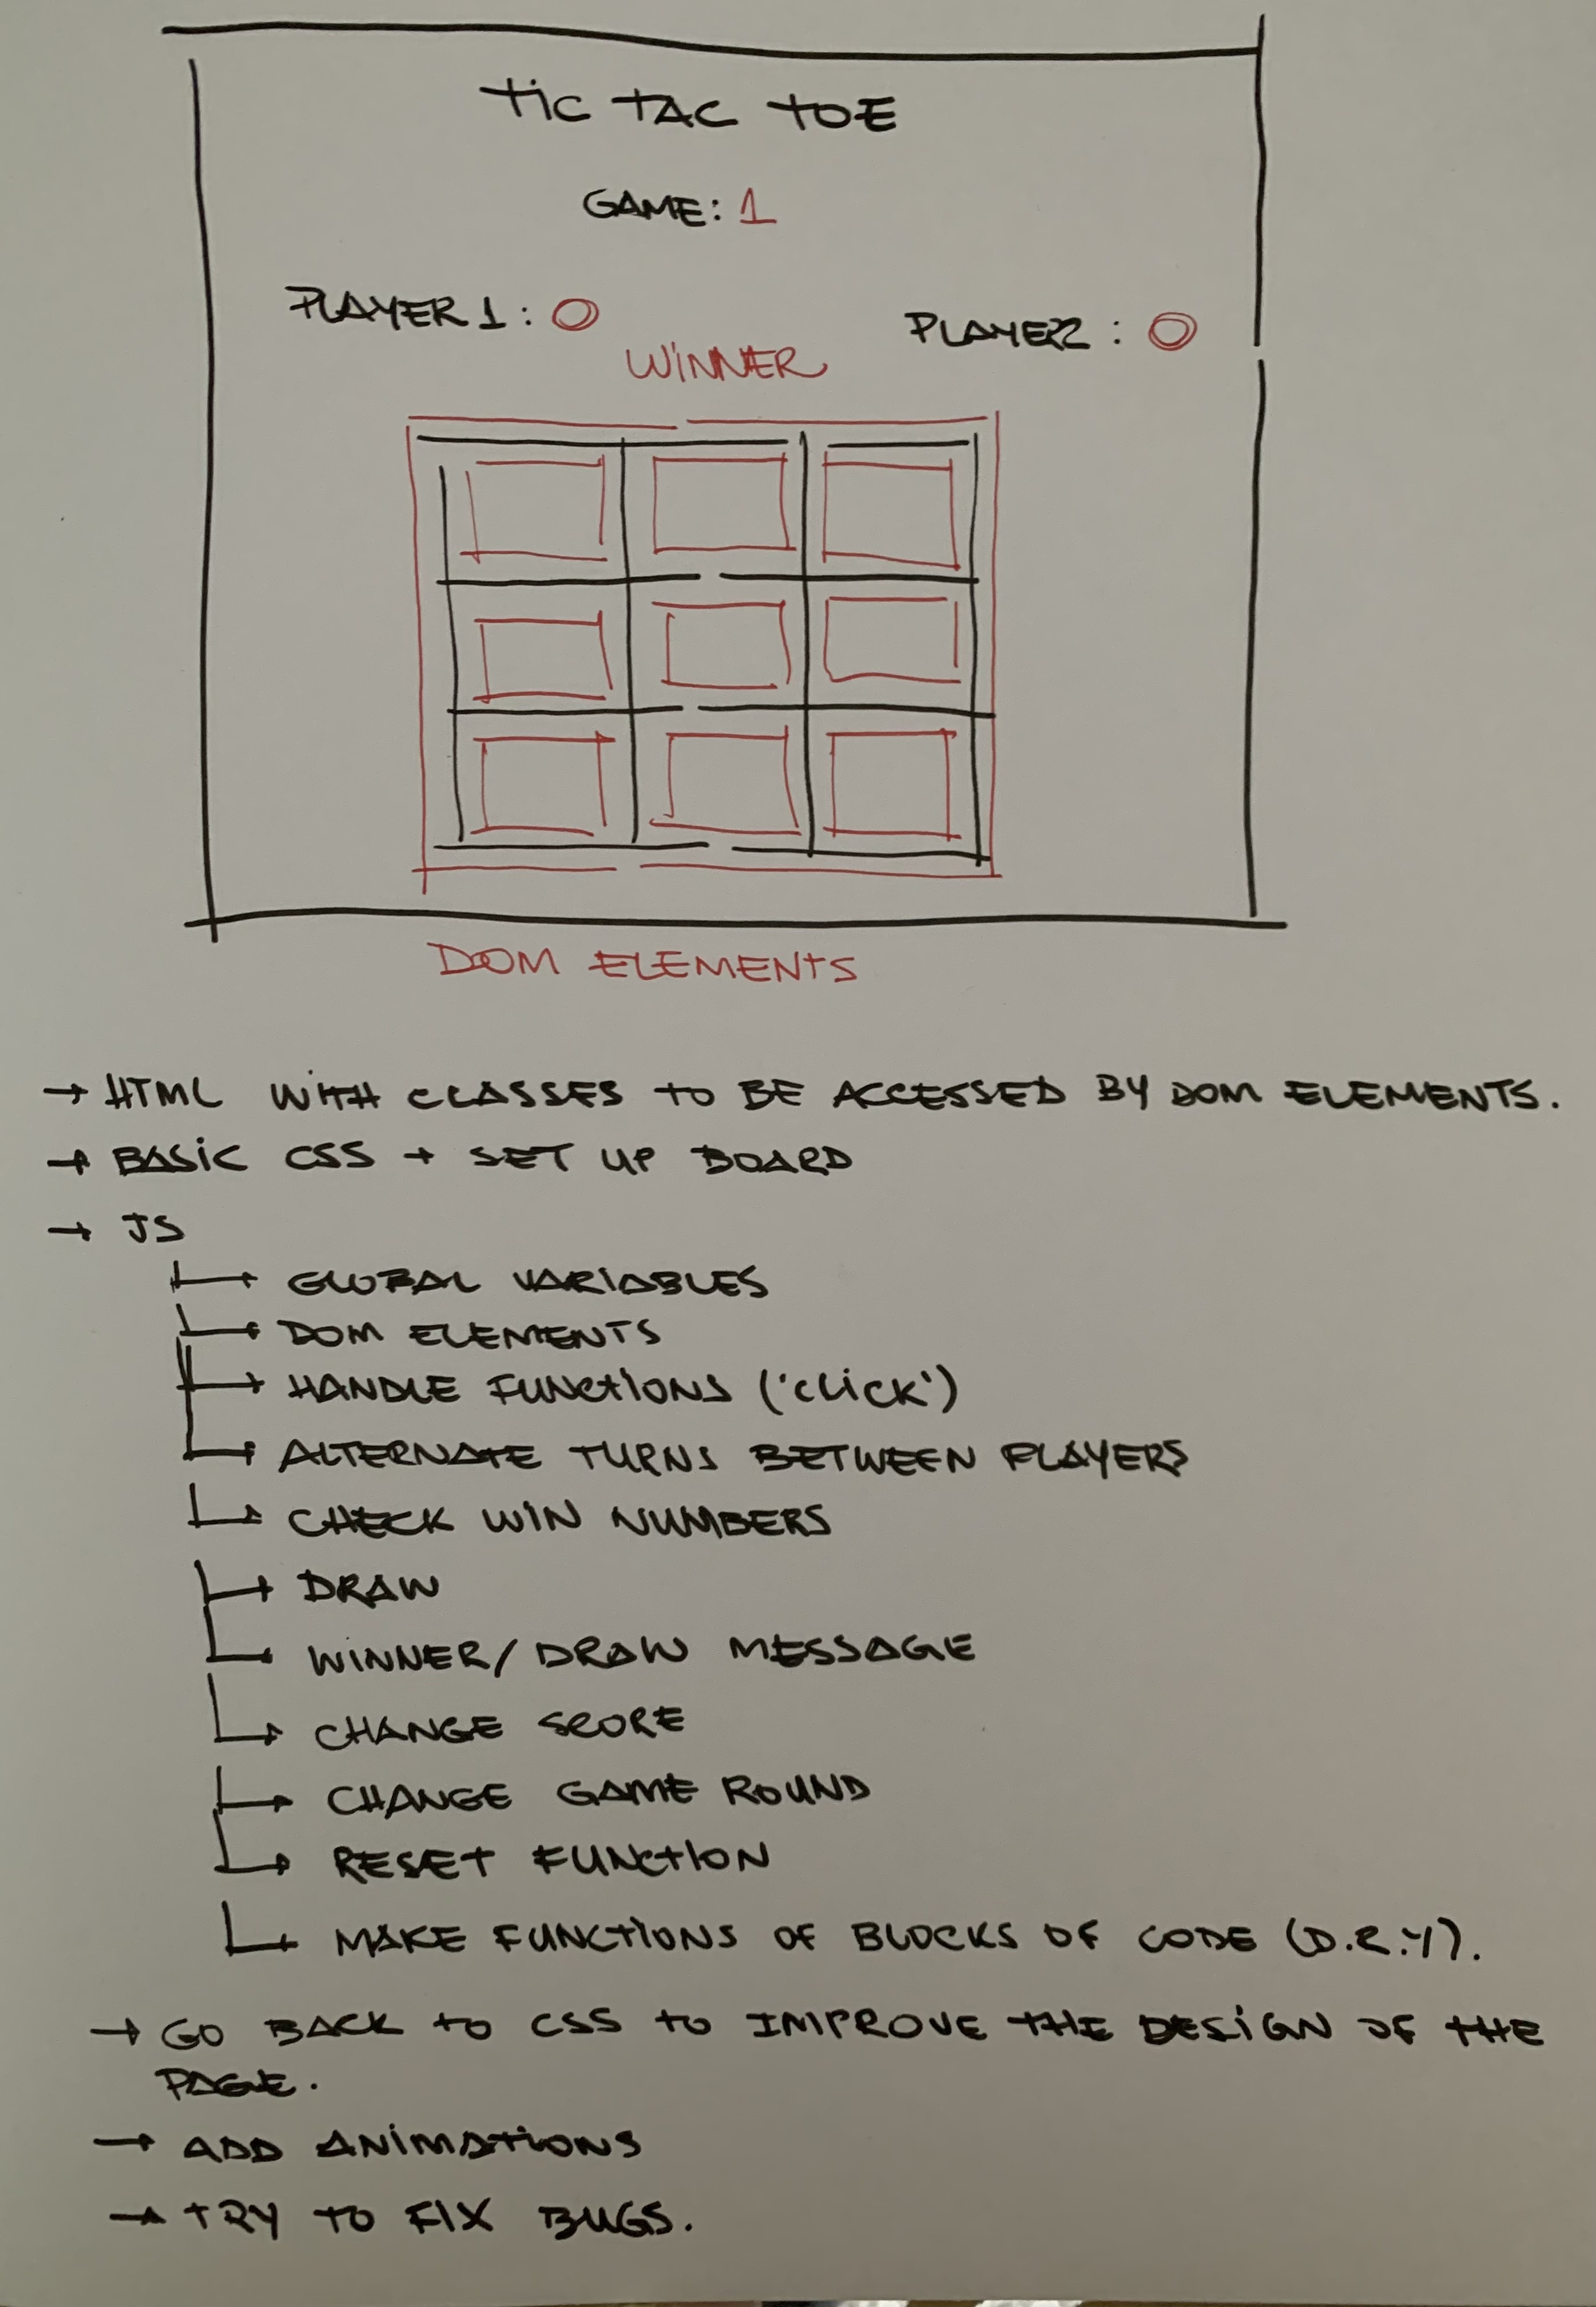 TIC TAC TOE
GAME: 1
PLAYER 1: O
PLAYER2: O
WINNER
DOM ELEMENTS
→ HTML WITH CLASSES TO BE ACCESSED BY DOM ELEMENTS.
→ BASIC CSS + SET UP BOARD
→ JS
→ GLOBAL VARIABLES
→ DOM ELEMENTS
→ HANDLE FUNCTIONS ('CLICK')
→ ALTERNATE TURNS BETWEEN PLAYERS
→ CHECK WIN NUMBERS
→ DRAW
→ WINNER/DRAW MESSAGE
→ CHANGE SCORE
→ CHANGE GAME ROUND
→ RESET FUNCTION
→ MAKE FUNCTIONS OF BLOCKS OF CODE (D.R.Y).
→ GO BACK TO CSS TO IMPROVE THE DESIGN OF THE
PAGE.
→ ADD ANIMATIONS
→ TRY TO FIX BUGS.